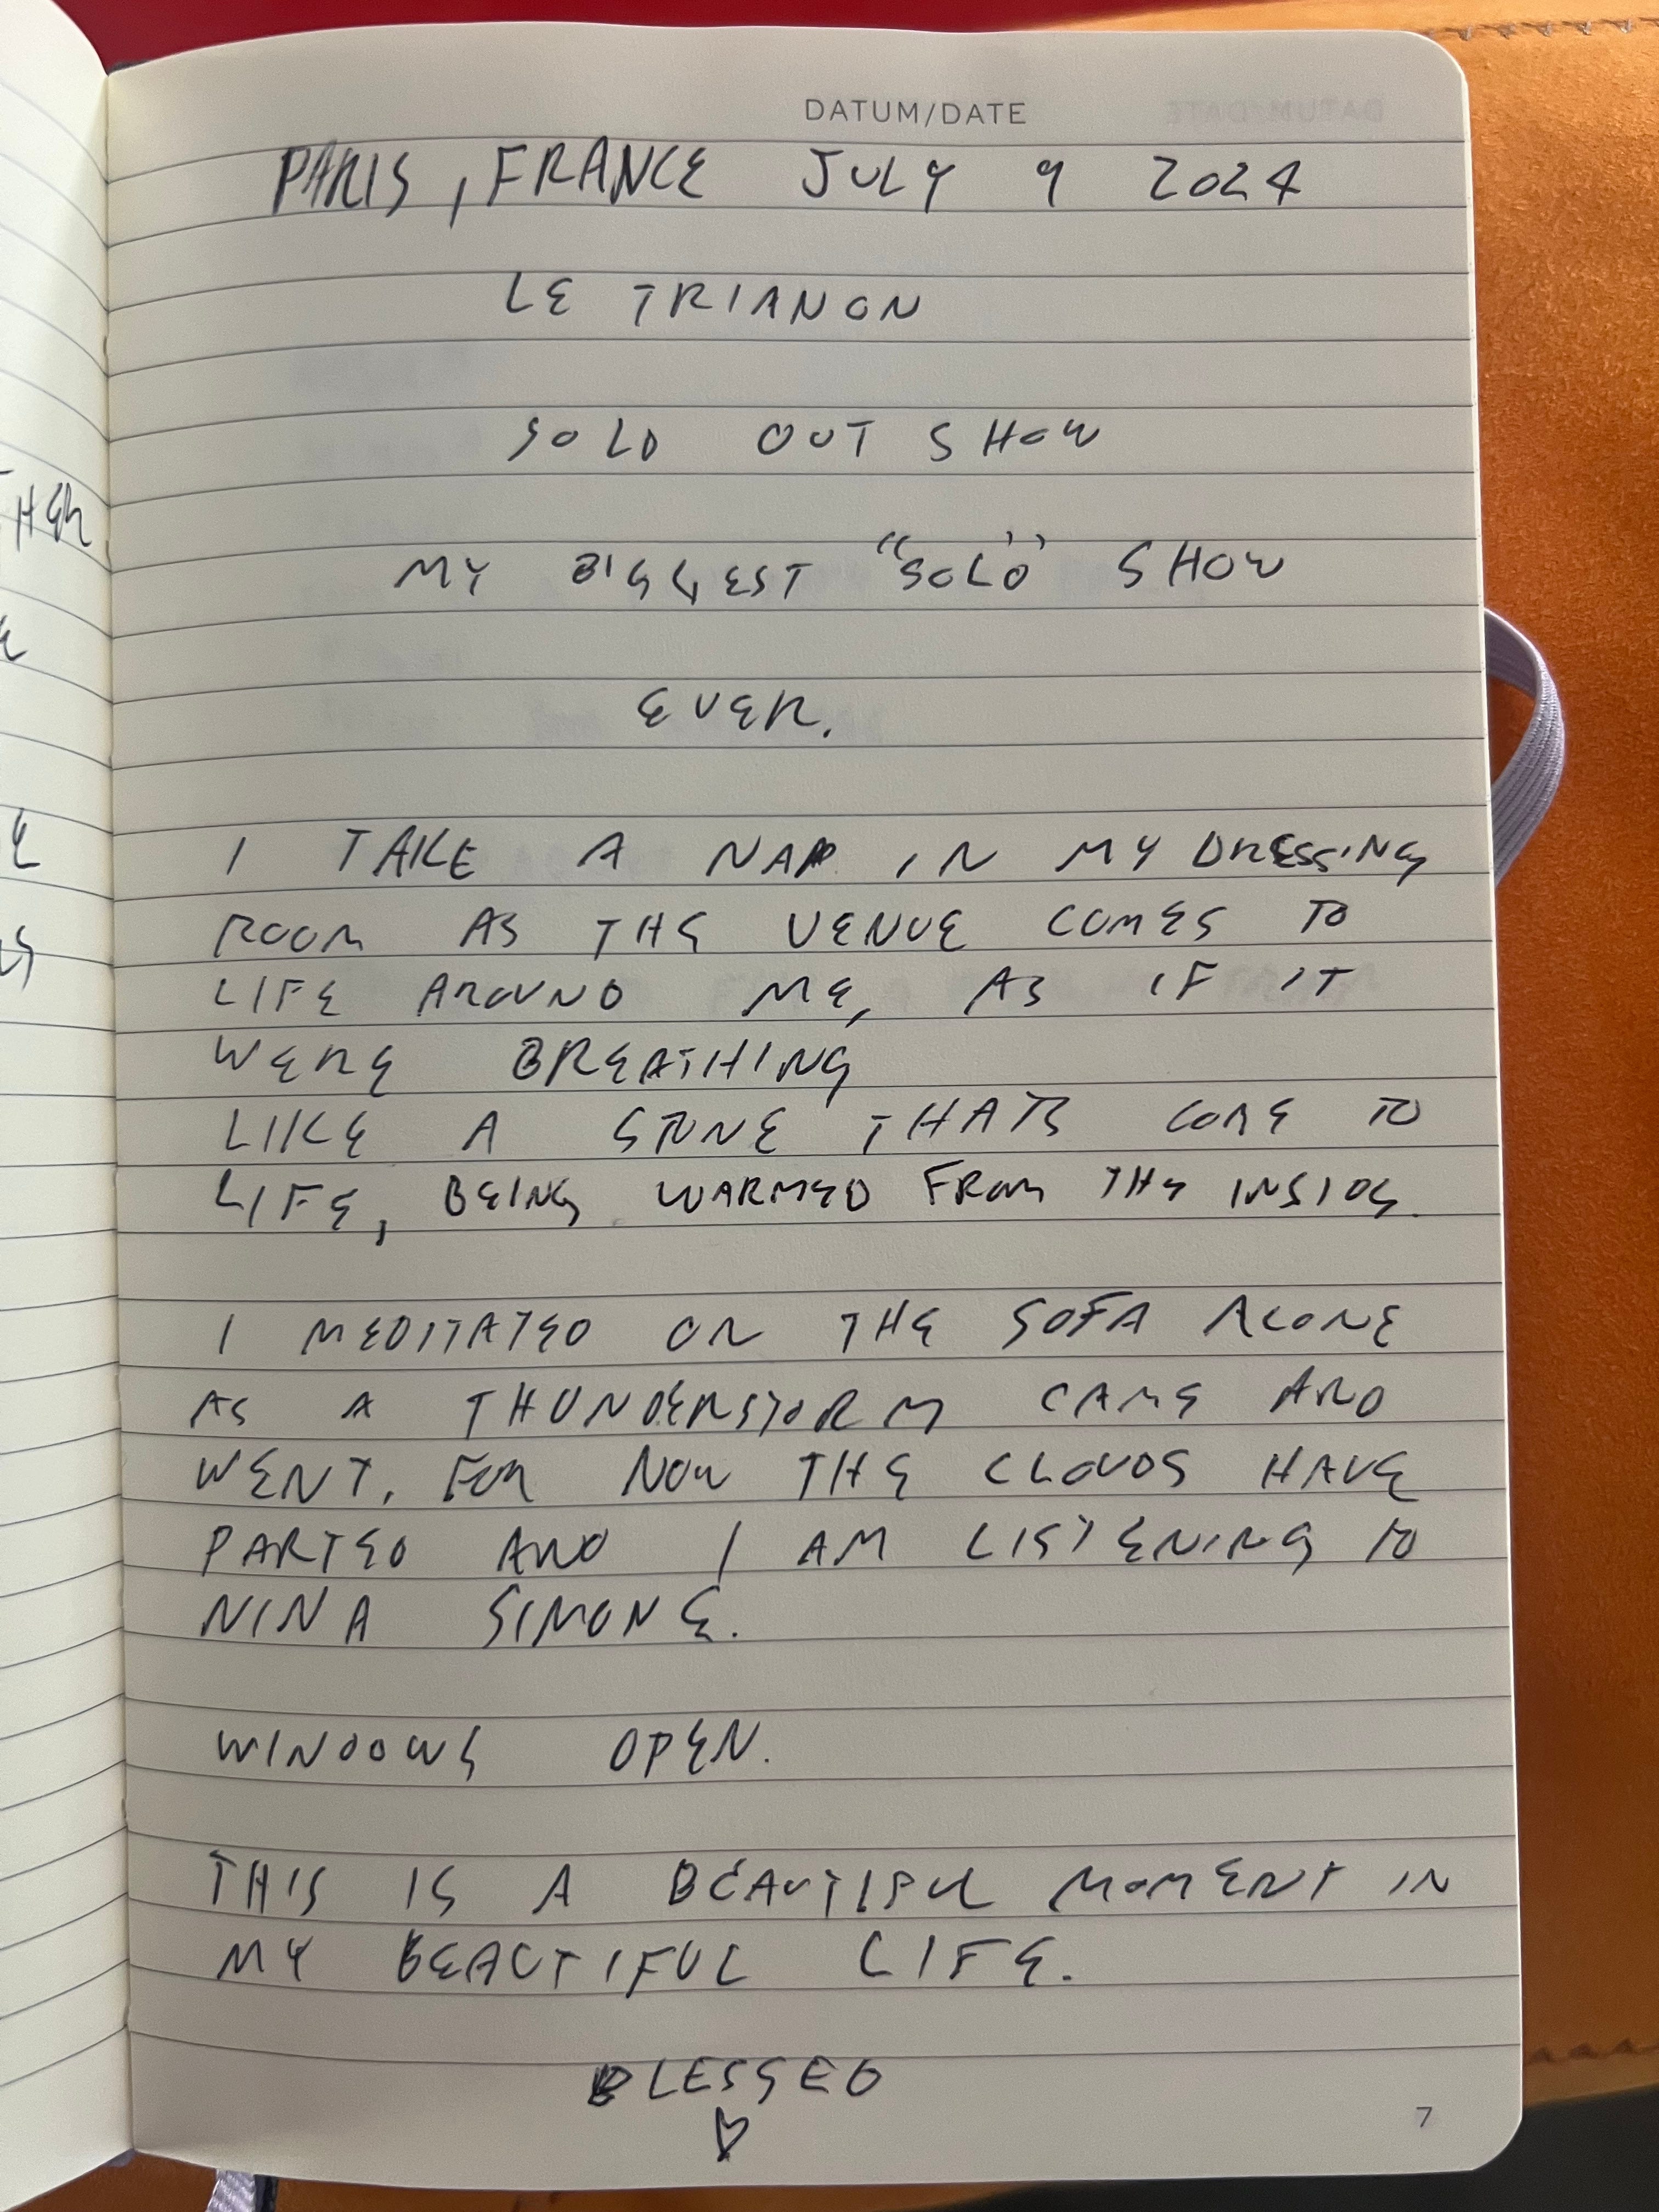 DATUM/DATE
PARIS, FRANCE JULY 9 2024
LE TRIANON
SOLD OUT SHOW
MY BIGGEST "SOLO" SHOW
EVER.
I TAKE A NAP IN MY DRESSING
ROOM AS THE VENUE COMES TO
LIFE AROUND ME, AS IF IT
WERE BREATHING
LIKE A STONE THATS COME TO
LIFE, BEING WARMED FROM THE INSIDE.
I MEDITATED ON THE SOFA ALONE
AS A THUNDERSTORM CAME AND
WENT. FOR NOW THE CLOUDS HAVE
PARTED AND I AM LISTENING TO
NINA SIMONE.
WINDOWS OPEN.
THIS IS A BEAUTIFUL MOMENT IN
MY BEAUTIFUL LIFE.
BLESSED
♡
7